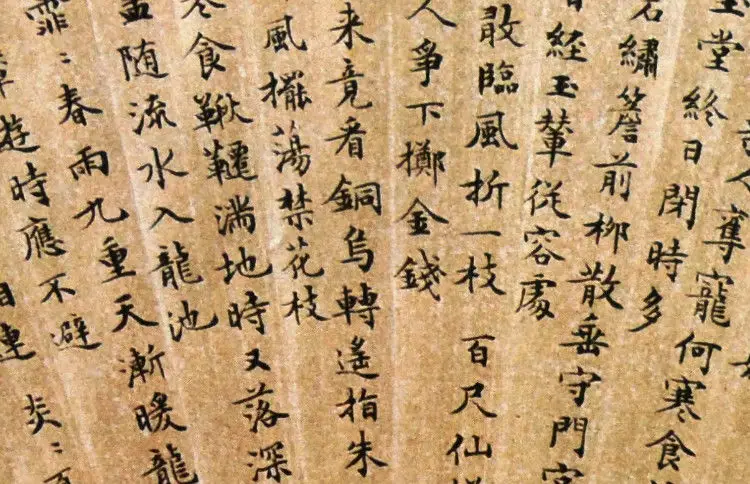 人奪寵何寒食
玉堂終日閉時多
繡簷前柳散垂守門宮
経玉輦従容處
敢臨風折一枝 百尺仙
人爭下擲金錢
来竟看銅烏轉遙指朱
風擺蕩禁花枝
食鞦韆滿地時又落深
盂随流水入龍池
霏:春雨九重天漸暖龍
遊時應不避
連 炎: